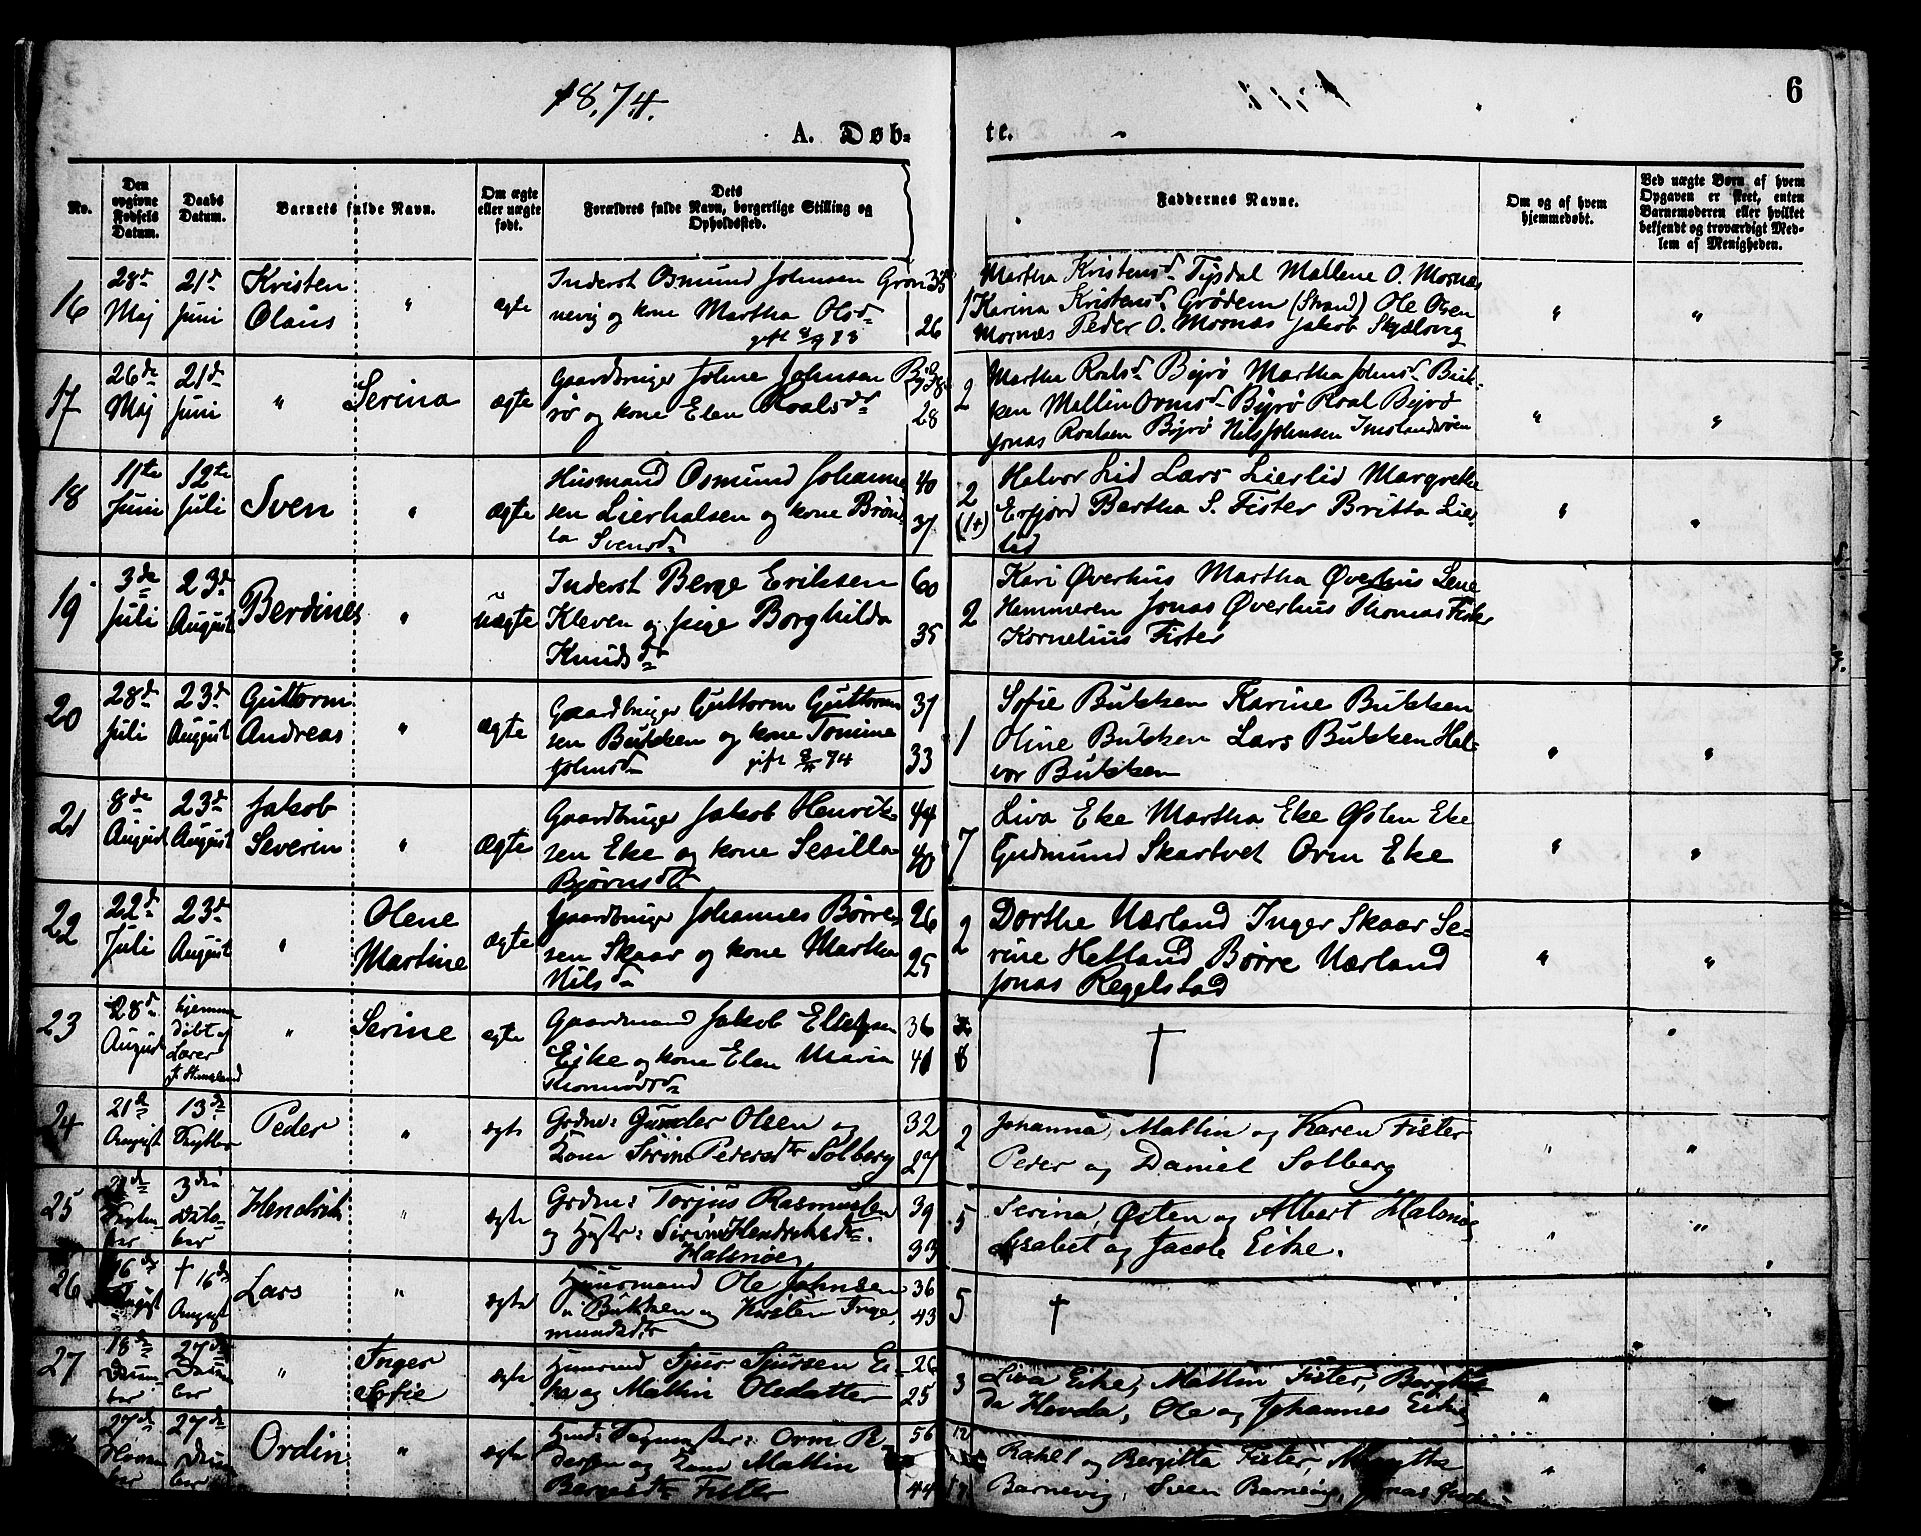 1874.
6
A. Døb-
te.
No.
Den opgivne Fødsels Datum.
Daabs Datum.
Barnets fulde Navn.
Om ægte eller uægte født.
Dets Forældres fulde Navn, borgerlige Stilling og Opholdssted.
Faddernes Navne.
Om og af hvem hjemmedøbt.
Ved uægte Børn af hvem Opgaven er skeet, enten Barnemoderen eller hvilket bekjendt og troværdigt Medlem af Menigheden.
16 28de Maj 21de Juni Kristen Olaus " ægte
Inderst Osmund Johnsen Grøn- 35
nevig og kone Martha Olsd. 26
gift 8/9 73
1
Martha Kristensd. Tysdal Mallene O. Mosnes
Karina Kristensd. Grødem (Strand) Ole Osen
Mosnæs Peder O. Mosnæs Jakob Skjælvig
" "
17 26de Maj 21de Juni " Serina ægte
Gaardbruger John Johnsen By- 28
rø og kone Elen Roalsdr 28
2
Martha Roalsd. Byrø Martha Johnsd. Buk-
ken Mallin Ormsd. Byrø Roal Byrø
Jonas Roalsen Byrø Nils Johnsen Imslandsøen
" "
18 11te Juni 12te Juli Sven " ægte
Husmand Osmund Johanne- 40
sen Lierhalsen og kone Brøn- 37
la Svensd.
2
(1+)
Halvor Lid Lars Lierlid Margrethe
Erfjord Bertha S. Fister Britta Lier-
lid
" "
19 3de Juli 23de August Berdines " uægte
Inderst Berge Eriksen 60
Kleven og pige Borghilda 35
Knudsd.
2
Kari Øverhus Martha Øverhus Lene
Hammeren Jonas Øverhus Thomas Fister
Kornelius Fister
20 28de Juli 23de August Guttorm Andreas " ægte
Gaardbruger Guttorm Guttorm- 37
sen Bukken og kone Tomine 33
Johnsd. gift 74
1
Sofie Bukken Karine Bukken
Oline Bukken Lars Bukken Hal-
vor Bukken
" "
21 8de August 23de August Jakob Severin " ægte
Gaardbruger Jakob Henrik- 44
sen Eke og kone Sesilla 40
Bjørnsdt.
7
Liva Eke Martha Eke Østen Eke
Gudmund Skartvet Orm Eke
" "
22 22de Juli 23de August " Olene Martine ægte
Gaardbruger Johannes Børre- 26
sen Skaar og kone Martha 25
Nilsd.
2
Dorthe Nærland Inger Skaar Se-
rine Hetland Børre Nærland
Jonas Regelstad
" "
23 28de August hjemme døbt af Lærer " Serine ægte
Gaardmand Jakob Ellefsen 36
Eike og kone Elen Maria 41
Thormodsd.
†
24 21de August 13de Septbr Peder " ægte
Grdm: Gunder Olsen og 32
Kone Sirine Pedersdtr Solberg 27
2
Johanna, Mallin og Karen Fister
Peder og Daniel Solberg
" "
25 Septem-ber 3die Okto-ber Hendrik " ægte
Grdm: Torjus Rasmussen 39
og Hustr: Sirine Hendriksdtr. 33
Halsnøe
5
Serina, Østen og Albert Halsnøe
Lisabet og Jacob Eike.
" "
26 16de August † 16de August Lars " ægte
Huusmand Ole Johnsen 36
Bukken og Kirsten Inge- 43
mundsdtr
5
†
27 18de Decem-ber 27de Decem-ber " Inger Sofie ægte
Huusmd Sjur Sjursen Ei- 26
ke og Mallin Olsdatter 25
3
Liva Eike, Mallin Fister, Borghil-
da Hovda, Ole og Johannes Eike
" "
27de Novem-ber 27de Decem-ber Ordin " ægte
Orm P 56
dersen og Kone Mallin
Bergesdtr Fister 44
Rakel og Bergitta Fister,
Barnevig, Sven Barnevig, Jonas
" "